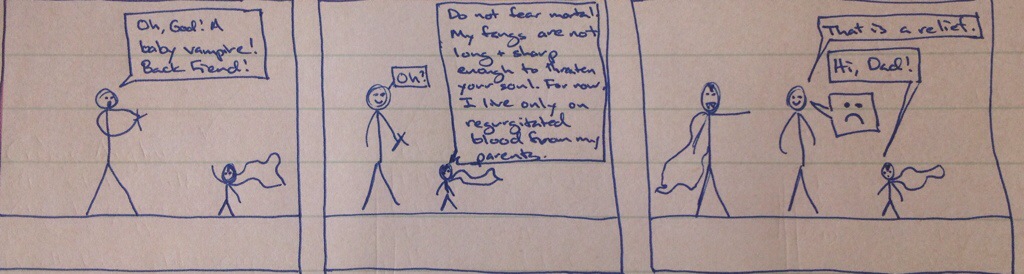 Oh, God! A
baby vampire!
Back Fiend!
Oh?
Do not fear mortal!
My fangs are not
long + sharp
enough to threaten
your soul. For now.
I live only on
regurgitated
blood from my
parents.
That is a relief.
Hi, Dad!